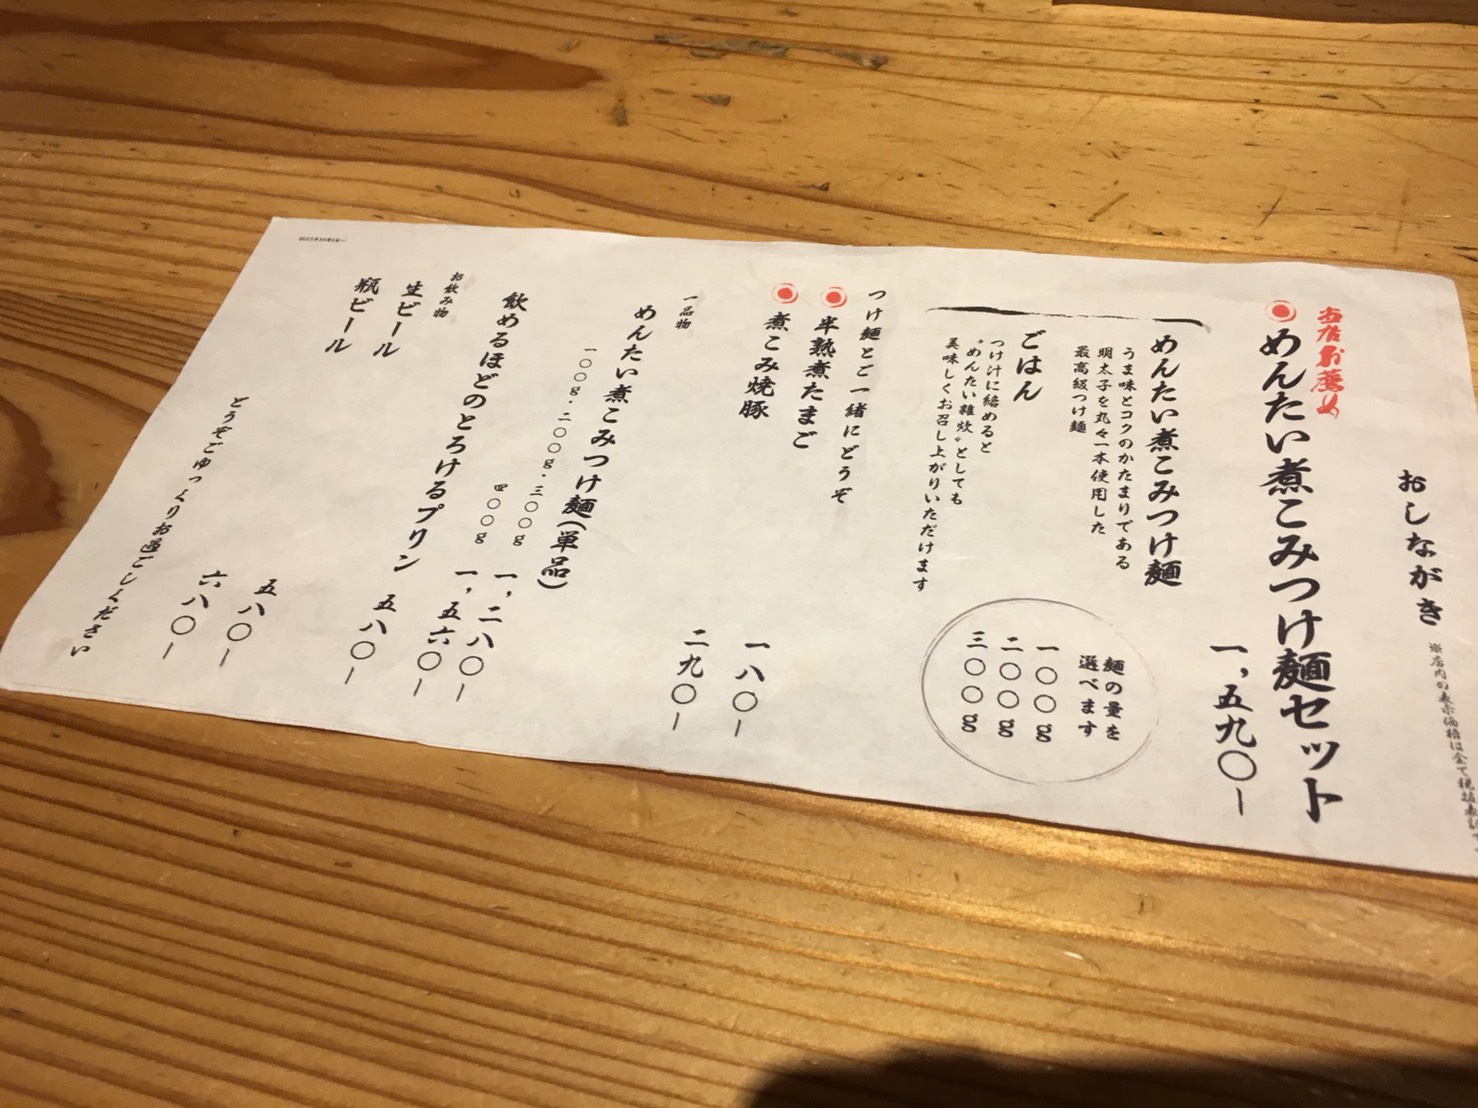 おしながき
※店内の表示価格は全て税抜表記です
当店お薦め
めんたい煮こみつけ麺セット
一,五九〇ー
めんたい煮こみつけ麺
うま味とコクのかたまりである
明太子を丸々一本使用した
最高級つけ麺
麺の量を
選べます
一〇〇g
二〇〇g
三〇〇g
ごはん
つけ汁に絡めると
〝めんたい雑炊〟としても
美味しくお召し上がりいただけます
つけ麺とご一緒にどうぞ
半熟煮たまご
一八〇ー
煮こみ焼豚
二九〇ー
一品物
めんたい煮こみつけ麺(単品)
一〇〇g・二〇〇g・三〇〇g
一,二八〇ー
四〇〇g
一,五六〇ー
飲めるほどのとろけるプリン
五八〇ー
お飲み物
生ビール
五八〇ー
瓶ビール
六八〇ー
どうぞごゆっくりお過ごしください